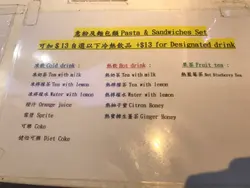 意粉及麵包類 Pasta & Sandwiches Set
可加$13自選以下冷熱飲品 +$13 for Designated drink
冷飲 Cold drink:
凍奶茶 Tea with milk
凍檸檬茶 Tea with lemon
凍檸檬水 Water with lemon
橙汁 Orange juice
雪碧 Sprite
可樂 Coke
健怡可樂 Diet Coke
熱飲 Hot drink:
熱奶茶 Tea with milk
熱檸檬茶 Tea with lemon
熱檸檬水 Water with lemon
熱柚子蜜 Citron Honey
Ginger Honey
果茶 Fruit tea:
Hot Blueberry Tea